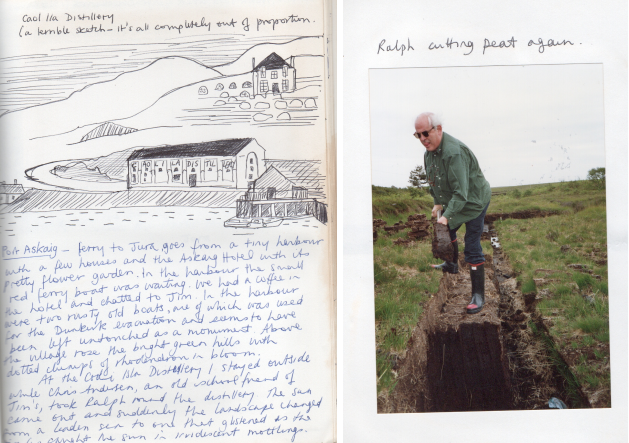 Caol Ila Distillery
(a terrible sketch - it's all completely out of proportion.
CAOL ILA DISTILLERY
Port Askaig - ferry to Jura goes from a tiny harbour
with a few houses and the Askaig Hotel with its
pretty flower garden. In the harbour the small
red ferry boat was waiting. We had a coffee in
the hotel and chatted to Jim. In the harbour
were two rusty old boats, one of which was used
for the Dunkirk evacuation and seems to have
been left untouched as a monument. Above
the village rose the bright green hills with
dotted clumps of rhododendron in bloom.
At the Caol Ila Distillery I stayed outside
while Chris Anderson, an old school friend of
Jim's, took Ralph round the distillery. The sun
came out and suddenly the landscape changed
from a leaden sea to one that glistened as the
caught the sun in irridescent mottlings...
Ralph cutting peat again.